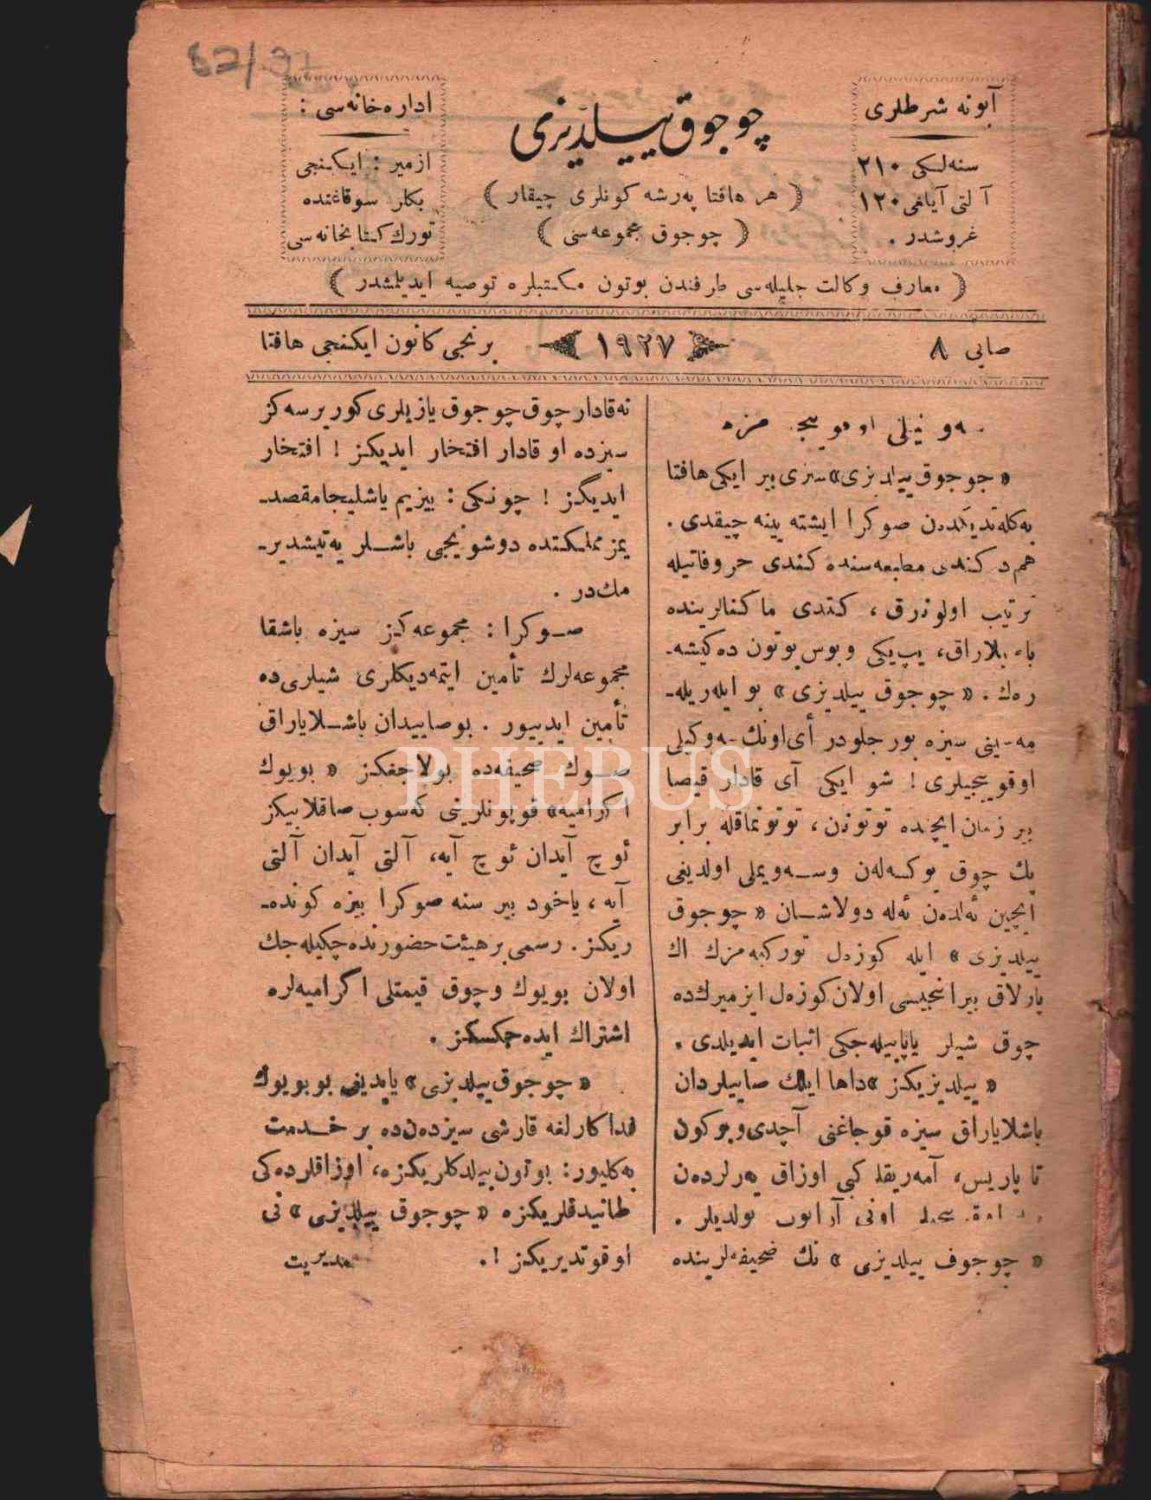 آبونه شرطلری
سنه‌لکی ٢١٠
آلتی آیلغی ١٢٠
غروشدر .
چوجوق ییلدیزی
( هر هافتا پەرشه کونلری چیقار )
( چوجوق مجموعه‌سی )
اداره‌خانه‌سی :
ازمیر : ایکنجی
بکلر سوقاغنده
تورك کتابخانه‌سی
( معارف وکالت جلیله‌سی طرفندن بوتون مکتبلره توصیه ایدیلمشدر )
صایی ٨
١٩٢٧
برنجی کانون ایکنجی هافتا
« چوجوق ییلدیزی » سزی بیر ایکی هافتا
بەکله‌تدیکدن صوکرا ایشته ینه چیقدی .
هم ده کندی مطبعه‌سنده کندی حروفاتیله
ترتیب اولونه‌رق ، کندی ماکنالرینده
باصیلاراق، یپ‌یکی و بوس‌بوتون ده‌کیشه‌-
ره‌ك . « چوجوق ییلدیزی » بو ایله‌ریله‌-
مه‌سینی سیزه بورجلودر أی اونك سه‌وکیلی
اوقوییجیلری ! شو ایکی آی قادار قیصا
بیر زمان ایچنده توتونن ، توتونماقله برابر
پك چوق یوکسه‌له‌ن وسه‌ویملی اولدیغی
ایچین ئه‌لده‌ن ئه‌له دولاشان « چوجوق
ییلدیزی » ایله کوزه‌ل تورکیه‌مزك اك
پارلاق بیر اینجیسی اولان کوزه‌ل ایزمیرك‌ده
چوق شیلر یاپابیله‌جکی اثبات ایدیلدی .
« ییلدیزیکز » داها ایلك صاییلردان
باشلایاراق سیزه قوجاغنی آچدی و بوکون
تا پاریس، آمه‌ریقا کبی اوزاق یه‌رلردەن
اونی آرایوب بولدیلر .
« چوجوق ییلدیزی » نك صحیفه‌لرینده
نه‌قادار چوق چوجوق یازیلری کوریرسه‌کز
سیزده او قادار افتخار ایدیکز ! افتخار
ایدیگز ! چونکی : بیزیم یاشلیجا مقصد-
یمز مملکتده دوشونیجی باشلر یه‌تیشدیر-
مك‌در .
صوکرا : مجموعه‌کز سیزه باشقا
مجموعه‌لرك تأمین ایتمه‌دیکلری شیلری ده
تأمین ایدییور . بو صاییدان باشلایاراق
صوك صحیفه‌ده بولاجغکز « بویوك
اکرامیه » قوپونلرینی که‌سوب صاقلاییکز
ئوچ آیدان ئوچ آیه، آلتی آیدان آلتی
آیه ، یاخود بیر سنه صوکرا بیزه کونده-
ریکز . رسمی بر هیئت حضورنده چکیله‌جك
اولان بویوك و چوق قیمتلی اکرامیه‌لره
اشتراك ایده‌جکسکز .
« چوجوق ییلدیزی » یاپدیغی بو بویوك
فداکارلغه قارشی سیزدەن‌ده بر خدمت
بەکلیور : بوتون بیلدکلریکزه، اوزاقلرده‌کی
طانیدقلریکزه « چوجوق ییلدیزی » نی
اوقوتدیریکز !. مدیریت
PHEBUS